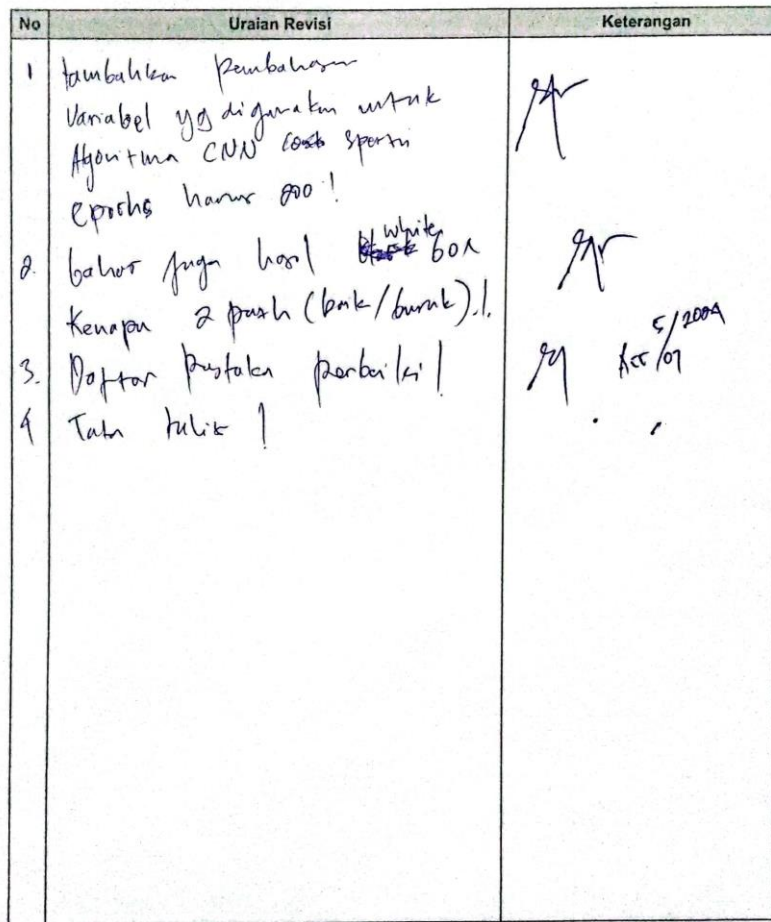 No Uraian Revisi Keterangan
1 tambahkan pembahasan
Variabel yg digunakan untuk
Algoritma CNN seperti
epochs harus 200!
2. bahas juga hasil white box
Kenapa 2 path (baik/buruk).!
3. Daftar pustaka perbaiki! Acc 5/2024
/07
4 Tata tulis !